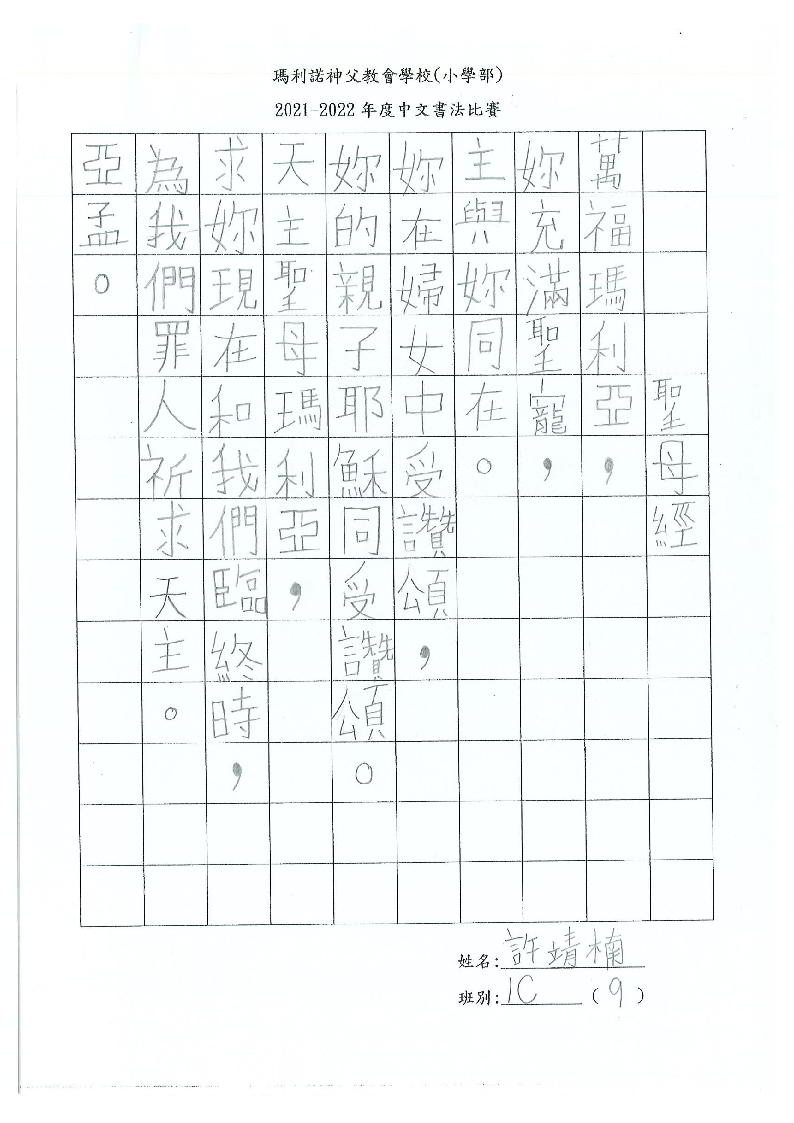 瑪利諾神父教會學校(小學部)
2021-2022年度中文書法比賽
聖母經
萬福瑪利亞，
妳充滿聖寵，
主與妳同在。
妳在婦女中受讚頌，
妳的親子耶穌同受讚頌。
天主聖母瑪利亞，
求妳現在和我們臨終時，
為我們罪人祈求天主。
亞孟。
姓名:許靖楠
班別:1C (9)